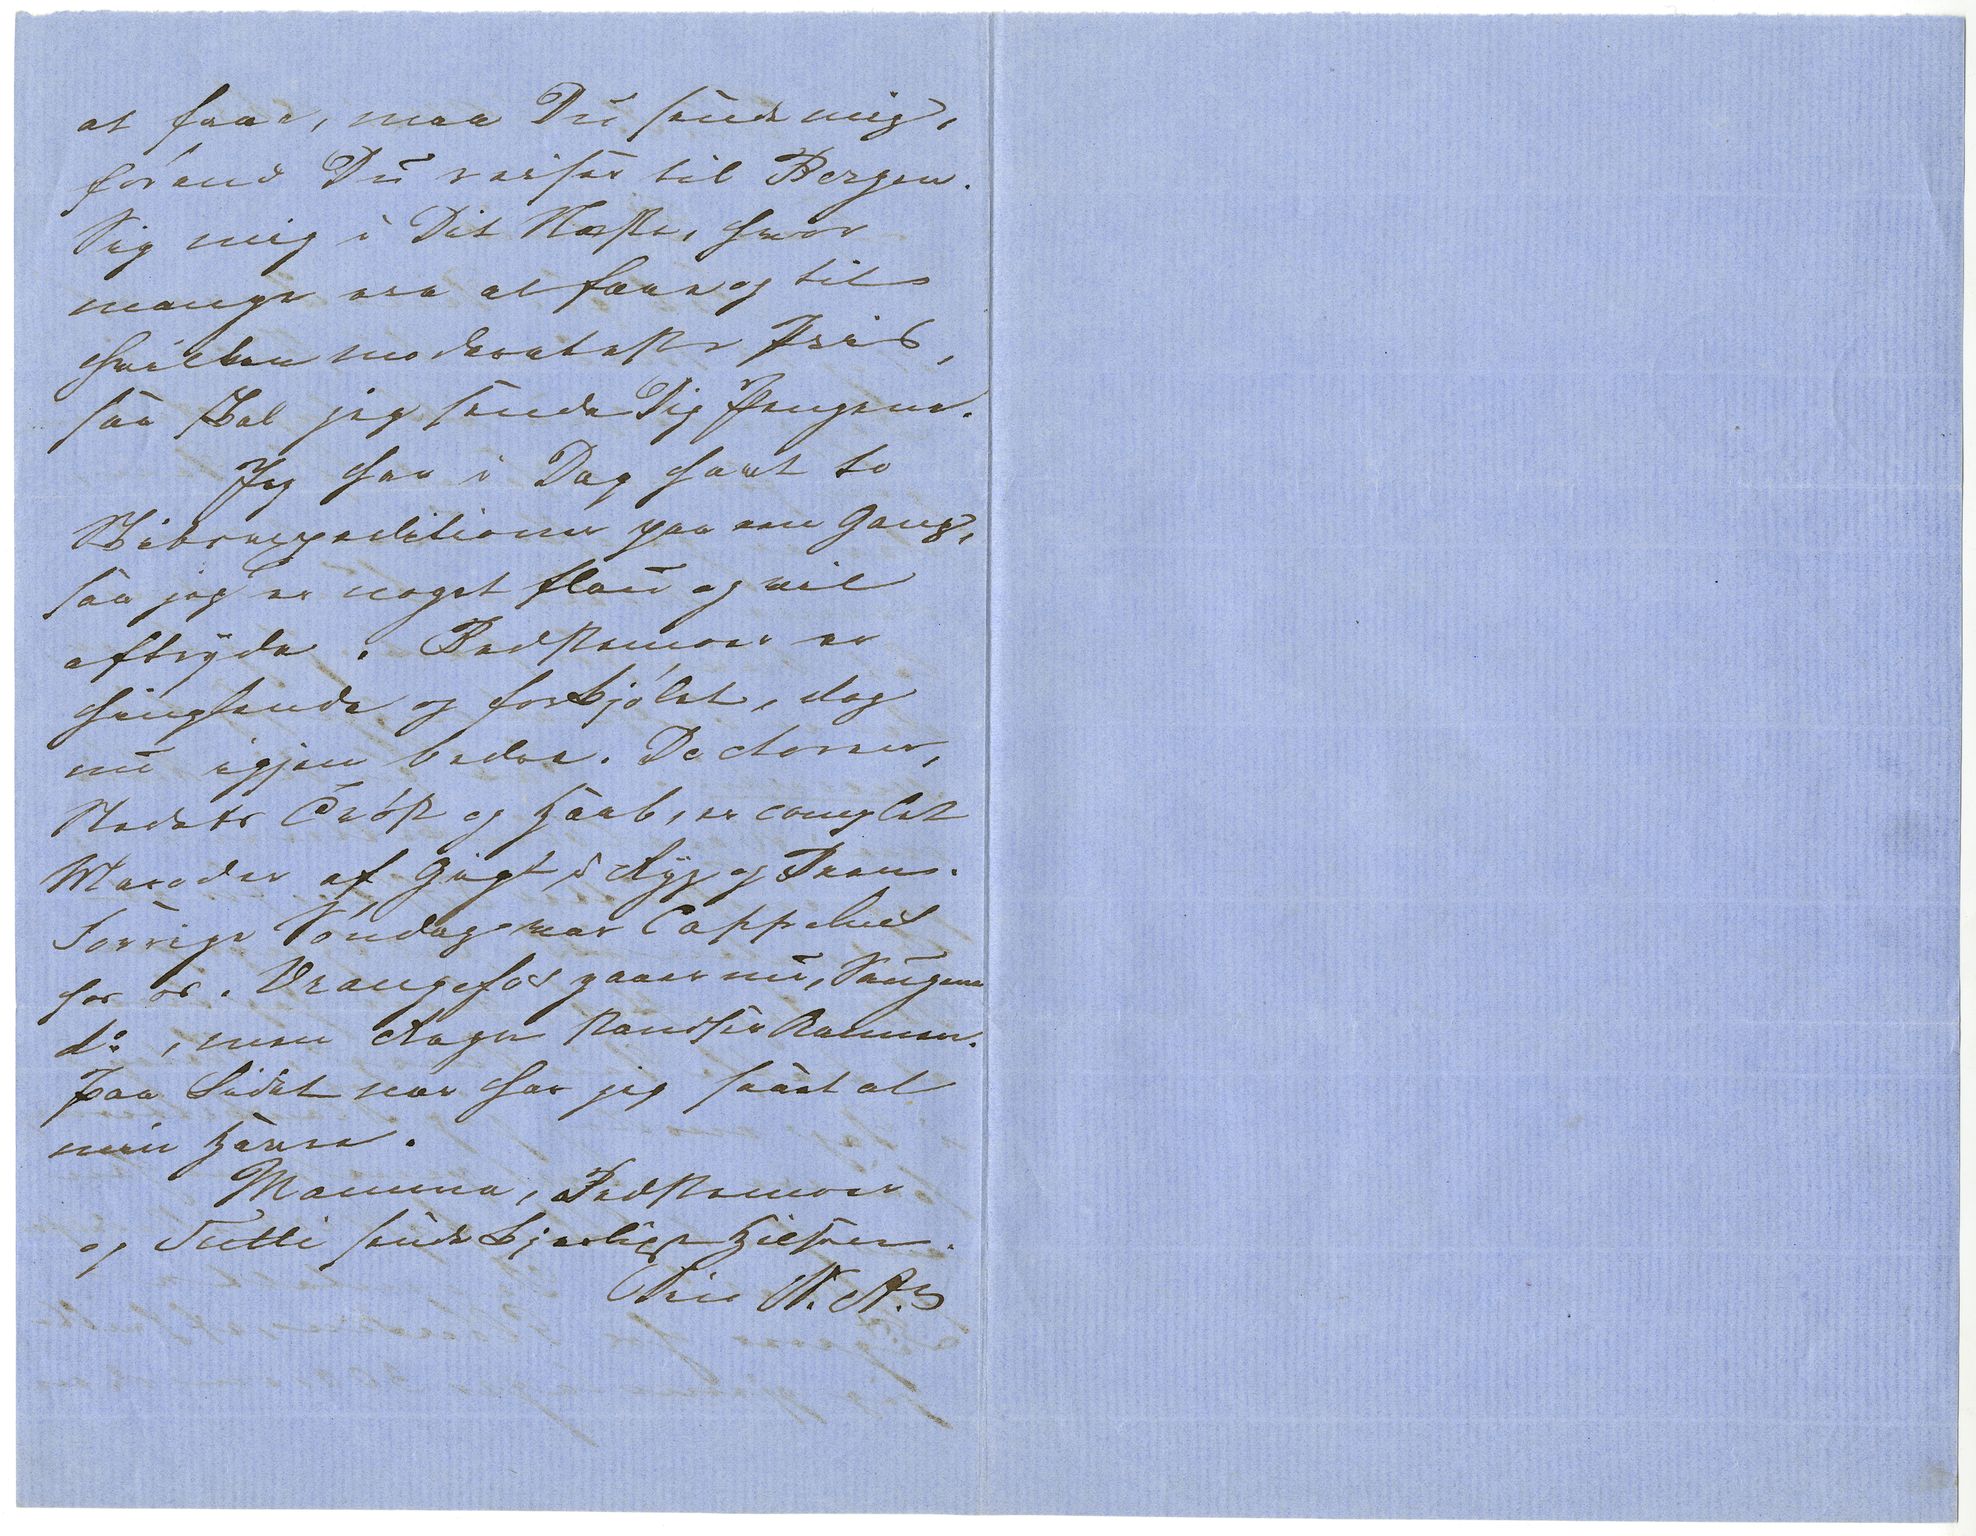 at faae, maa Du sende mig,
førend Du reiser til Bergen.
Sig mig i Dit Næste, hvor
mange ere at faae og til
hvilken moderateste Priis,
saa skal jeg sende Dig Pengene.
Jeg har i Dag havt to
Skibsexpeditioner paa een Gang,
saa jeg er noget flau og vil
aftryde. Bedstemoer er
hinglende og forkjølet, dog
nu igjen bedre. Doctoren,
Stedets Trøst og Haab, er complet
Maroder af Gigt i Ryg og Been.
Forrige Søndag var Cappelus
hos os. Vrangfos gaaer nu, Saugene
do, men Aagen standser Rammen.
Paa Lidet nær har jeg saaet al
min Havre.
Mamma, Bedstemoer
og Tulli sende kjærligst Hilsen.
Din N. A.